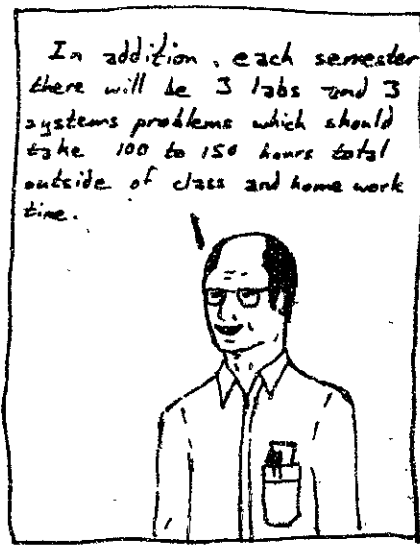 In addition, each semester
there will be 3 labs and 3
systems problems which should
take 100 to 150 hours total
outside of class and home work
time.